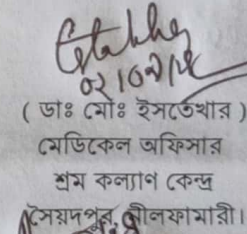 ০২/০৯/১৮
( ডাঃ মোঃ ইসতেখার )
মেডিকেল অফিসার
শ্রম কল্যাণ কেন্দ্র
সৈয়দপুর, নীলফামারী।